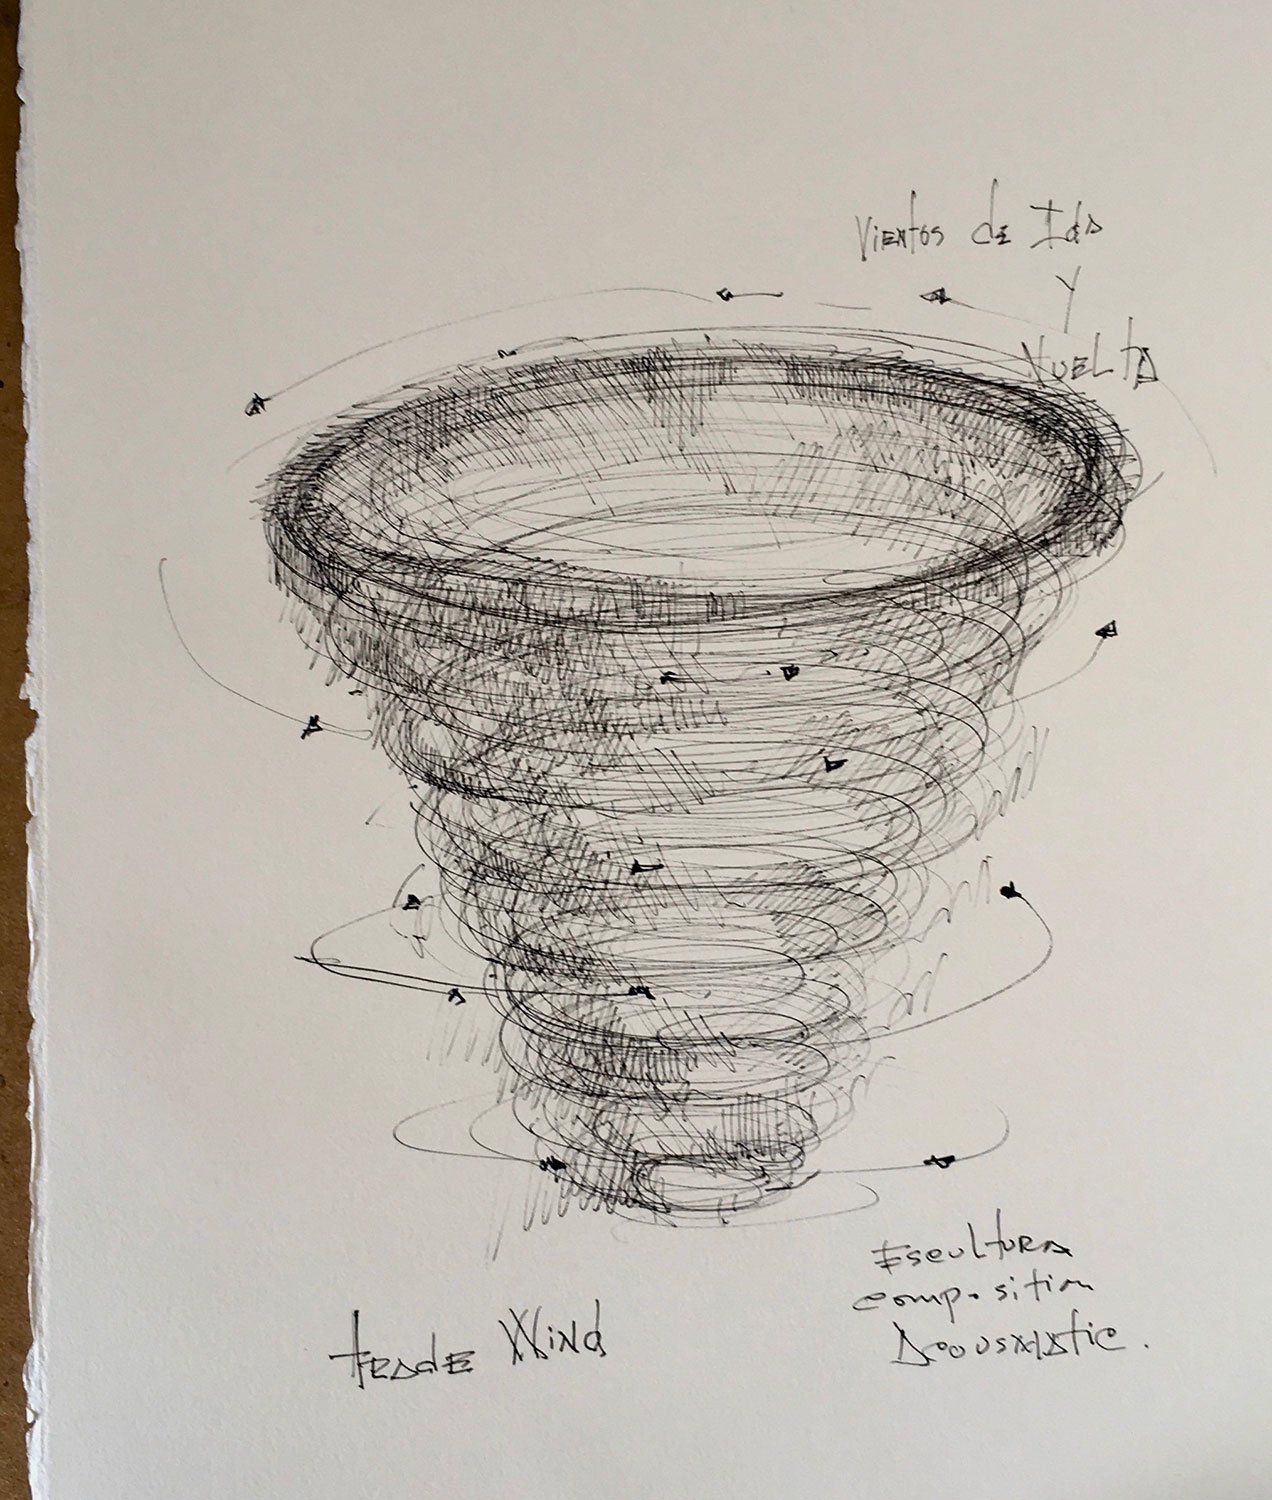 Vientos de Ida
y
Vuelta
Trade Wind
Escultura
composition
Acousmatic.